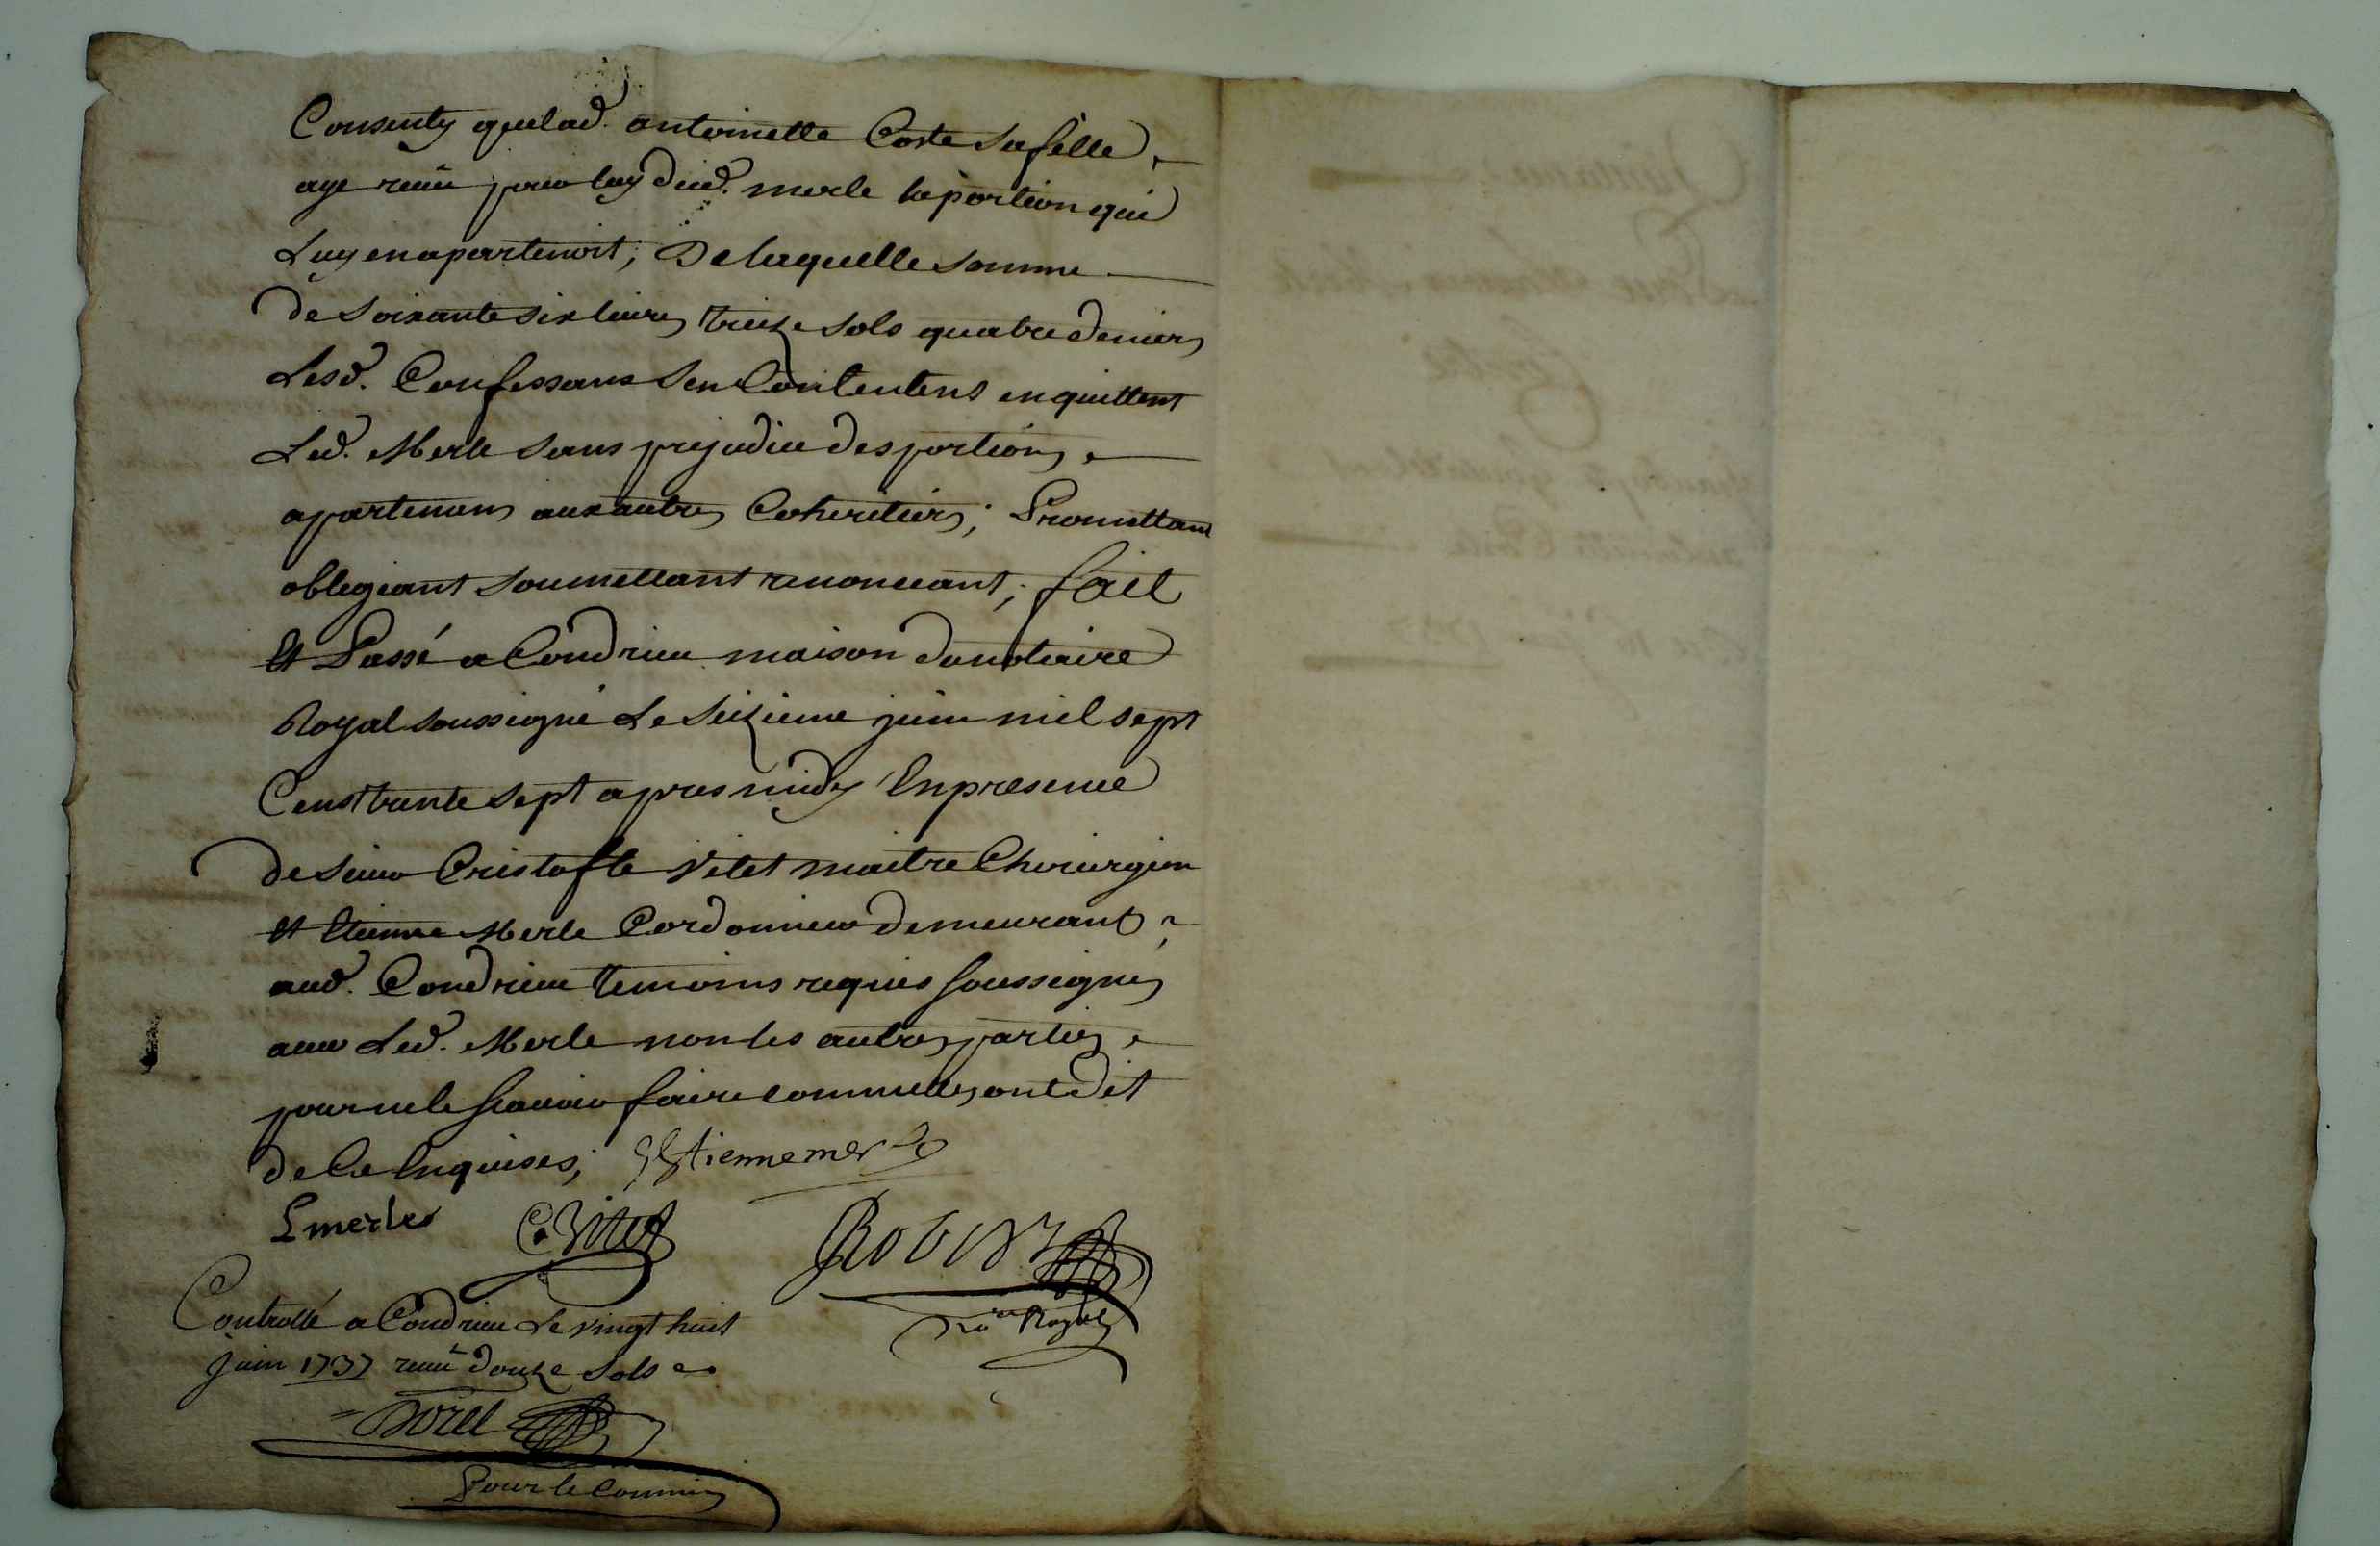 Consenty quelad. antoinette Coste sa fille
aye reçu pour luy dud. merle la portion qui
Luy en apartenoit; De laquelle somme
de soixante six livres treize sols quatre deniers
Lesd. Confessans s'en Contentens en quittent
Led. Merle sans prejudice des portions
apartenens aux autres Coheritiers; Promettant
obligeant soumettant renonceant; fait
Et Passé a Condrieu maison du notaire
Royal soussigné Le seizieme juin mil sept
Cent trente sept apres midy En presence
de sieur Cristofle Vitet maitre Chirurgien
Et Etienne Merle Cordonnier demeurant
aud. Condrieu temoins requis soussignes
avec Led. Merle non les autres parties
pour ne le scavoir faire comme elles ont dit
de Ce Enquises; Estienne merle
L merle C. Vitet Robin
no.re Royal
Controllé a Condrieu Le vingt huit
Juin 1737 reçu douze sols
Borel
Pour le Commis